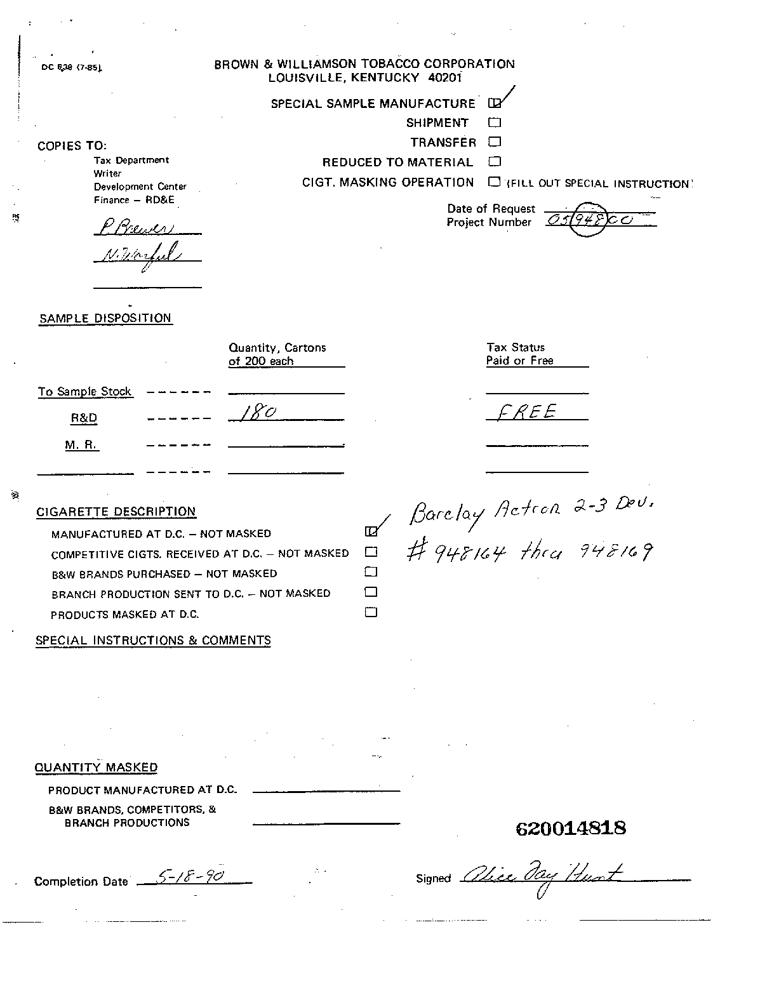 DC 538 (7-85)
BROWN & WILLIAMSON TOBACCO CORPORATION
LOUISVILLE, KENTUCKY 40201
SPECIAL SAMPLE MANUFACTURE
SHIPMENT
TRANSFER
REDUCED TO MATERIAL
CIGT. MASKING OPERATION (FILL OUT SPECIAL INSTRUCTION)
COPIES TO:
Tax Department
Writer
Development Center
Finance – RD&E
P. Brewer
Date of Request
Project Number 0594800
SAMPLE DISPOSITION
Quantity, Cartons
of 200 each
Tax Status
Paid or Free
To Sample Stock ------
R&D ------ 180 FREE
M. R. ------
------
CIGARETTE DESCRIPTION
MANUFACTURED AT D.C. – NOT MASKED
COMPETITIVE CIGTS. RECEIVED AT D.C. – NOT MASKED
B&W BRANDS PURCHASED – NOT MASKED
BRANCH PRODUCTION SENT TO D.C. – NOT MASKED
PRODUCTS MASKED AT D.C.
Barclay Actron 2-3 Dev.
# 948164 thru 948169
SPECIAL INSTRUCTIONS & COMMENTS
QUANTITY MASKED
PRODUCT MANUFACTURED AT D.C.
B&W BRANDS, COMPETITORS, &
BRANCH PRODUCTIONS
620014818
Completion Date 5-18-90
Signed Alice Fay Hunt